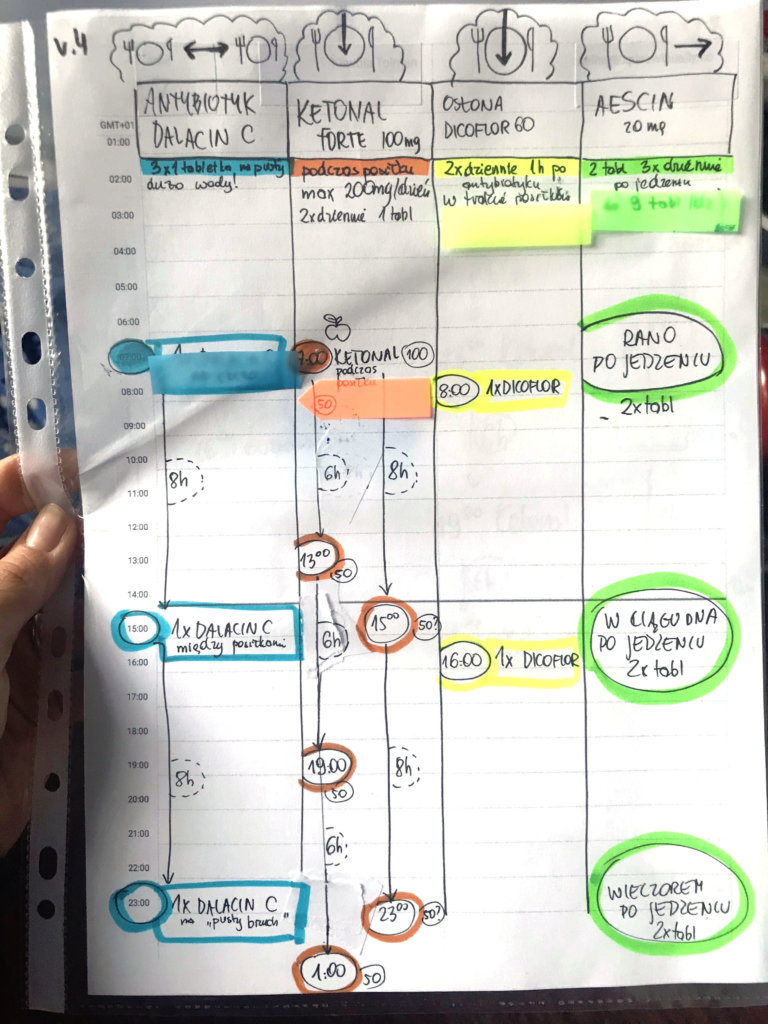 v.4
ANTYBIOTYK
DALACIN C
KETONAL
FORTE 100mg
OSŁONA
DICOFLOR 60
AESCIN
20 mg
GMT+01
01:00
02:00
03:00
04:00
05:00
06:00
07:00
08:00
09:00
10:00
11:00
12:00
13:00
14:00
15:00
16:00
17:00
18:00
19:00
20:00
21:00
22:00
23:00
3x1 tabletka na pusty
dużo wody!
8h
1x DALACIN C
między posiłkami
8h
1x DALACIN C
na "pusty brzuch"
podczas posiłku
max 200mg/dzień
2x dziennie 1 tabl
7:00 KETONAL 100
podczas
posiłku
50
6h
8h
13:00
50
6h
15:00
50?
19:00
50
8h
6h
23:00
50?
1:00
50
2x dziennie 1h po
antybiotyku
w trakcie posiłków
8:00 1xDICOFLOR
16:00 1x DICOFLOR
2 tabl 3x dziennie
po jedzeniu
9 tabl
RANO
PO JEDZENIU
2x tabl
W CIĄGU DNA
PO JEDZENIU
2x tabl
WIECZOREM
PO JEDZENIU
2x tabl